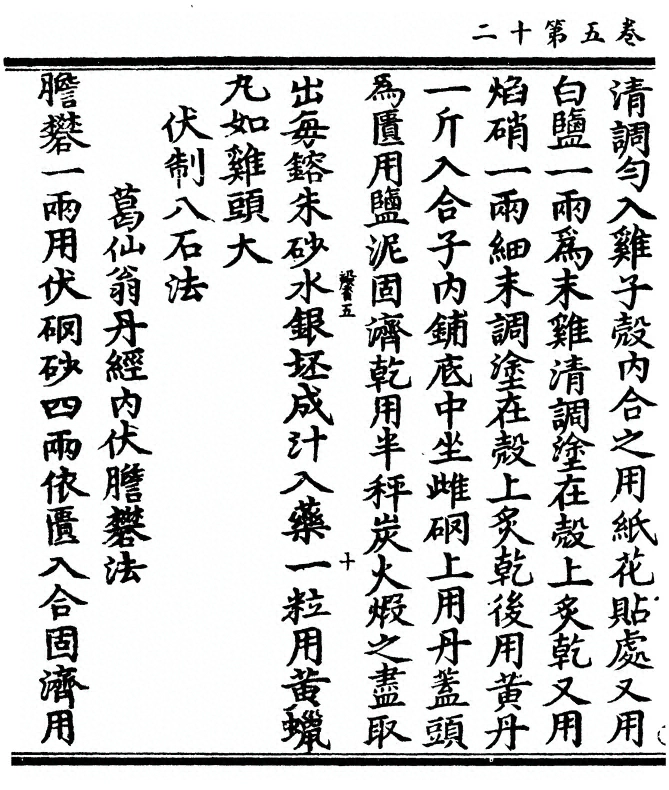 卷五第十二
清調勻入雞子殼內合之用紙花貼處又用
白鹽一兩爲末雞清調塗在殼上炙乾又用
焰硝一兩細末調塗在殼上炙乾後用黃丹
一斤入合子內鋪底中坐雌硇上用丹蓋頭
爲匱用鹽泥固濟乾用半秤炭火煅之盡取
出每鎔朱砂水銀坯成汁入藥一粒用黃蠟
丸如雞頭大
伏制八石法
葛仙翁丹經內伏膽礬法
膽礬一兩用伏硇砂四兩依匱入合固濟用
十